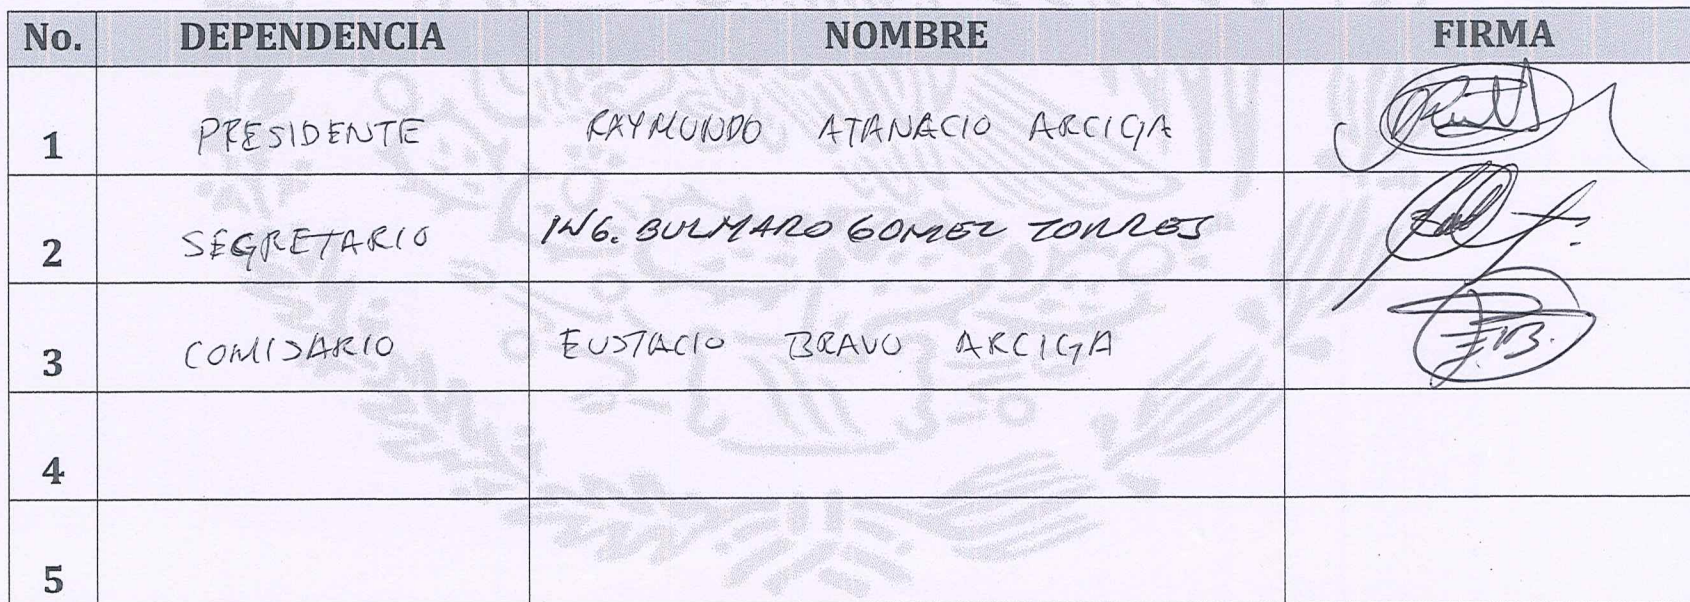 No. DEPENDENCIA NOMBRE FIRMA
1 PRESIDENTE RAYMUNDO ATANACIO ARCIGA
2 SEGRETARIO ING. BULMARO GOMEZ TORRES
3 COMISARIO EUSTACIO BRAVO ARCIGA
4
5